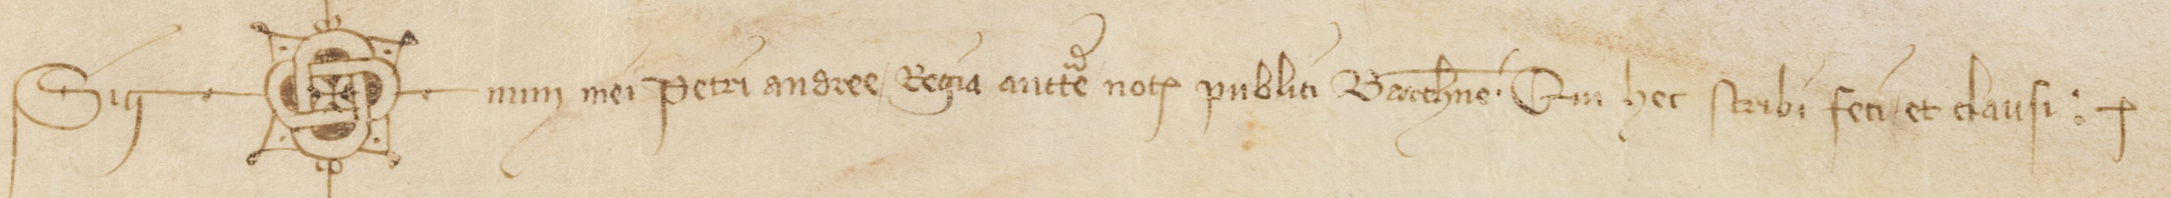 Sig num mei Petri andree / Regia auctte not publici Barchne. Qui hec scribi feci / et clausi :